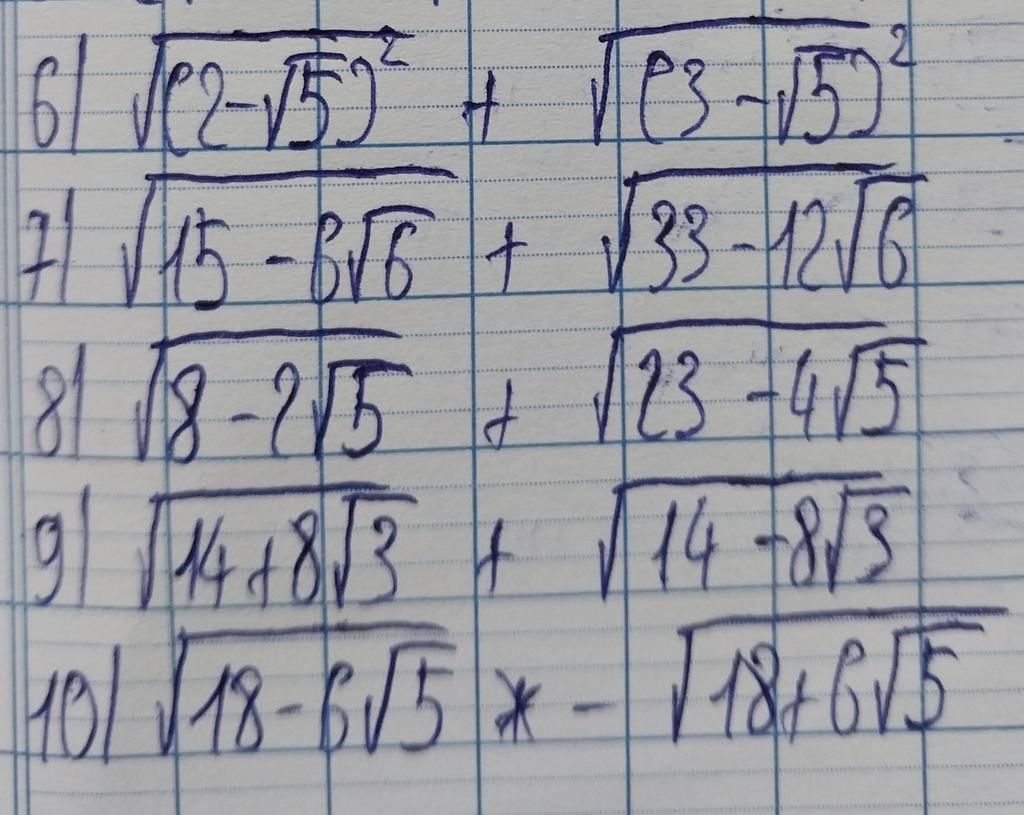 6) √(2-√5)² + √(3-√5)²
7) √15-6√6 + √33-12√6
8) √8-2√5 + √23-4√5
9) √14+8√3 + √14-8√3
10) √18-6√5 - √18+6√5